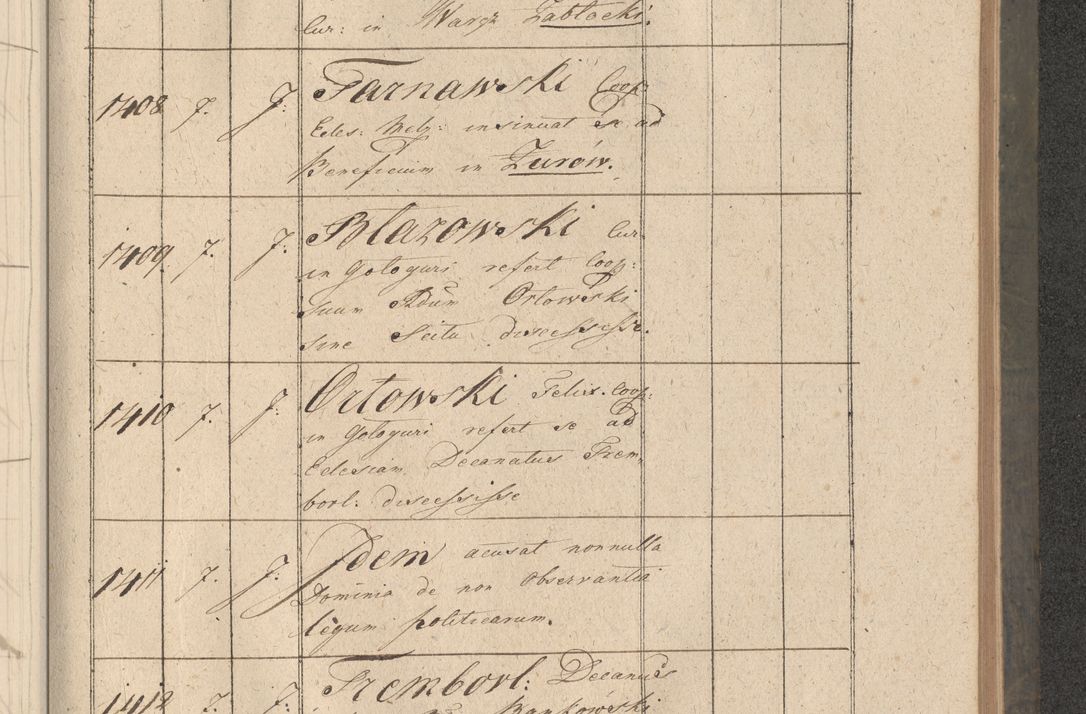 Cur: in Waręż Zabłocki.
1408 7. J: Tarnawski Coop:
Eccles: Metp: insinuat se ad
Beneficium in Żurów.
1409 7. J: Blazowski Cur:
in Gologuri refert Coop:
suum Adum Orłowski
sine Scitu discessisse.
1410 7. J: Orłowski Felix. Coop:
in Gologuri refert se ad
Eclesiam Decanatus Trem-
bovl: discessisse
1411 7. J: Idem acusat nonnulla
Dominia de non observantia
legum politicarum.
1412 7. J: Trembovl: Decanus
Bankowski